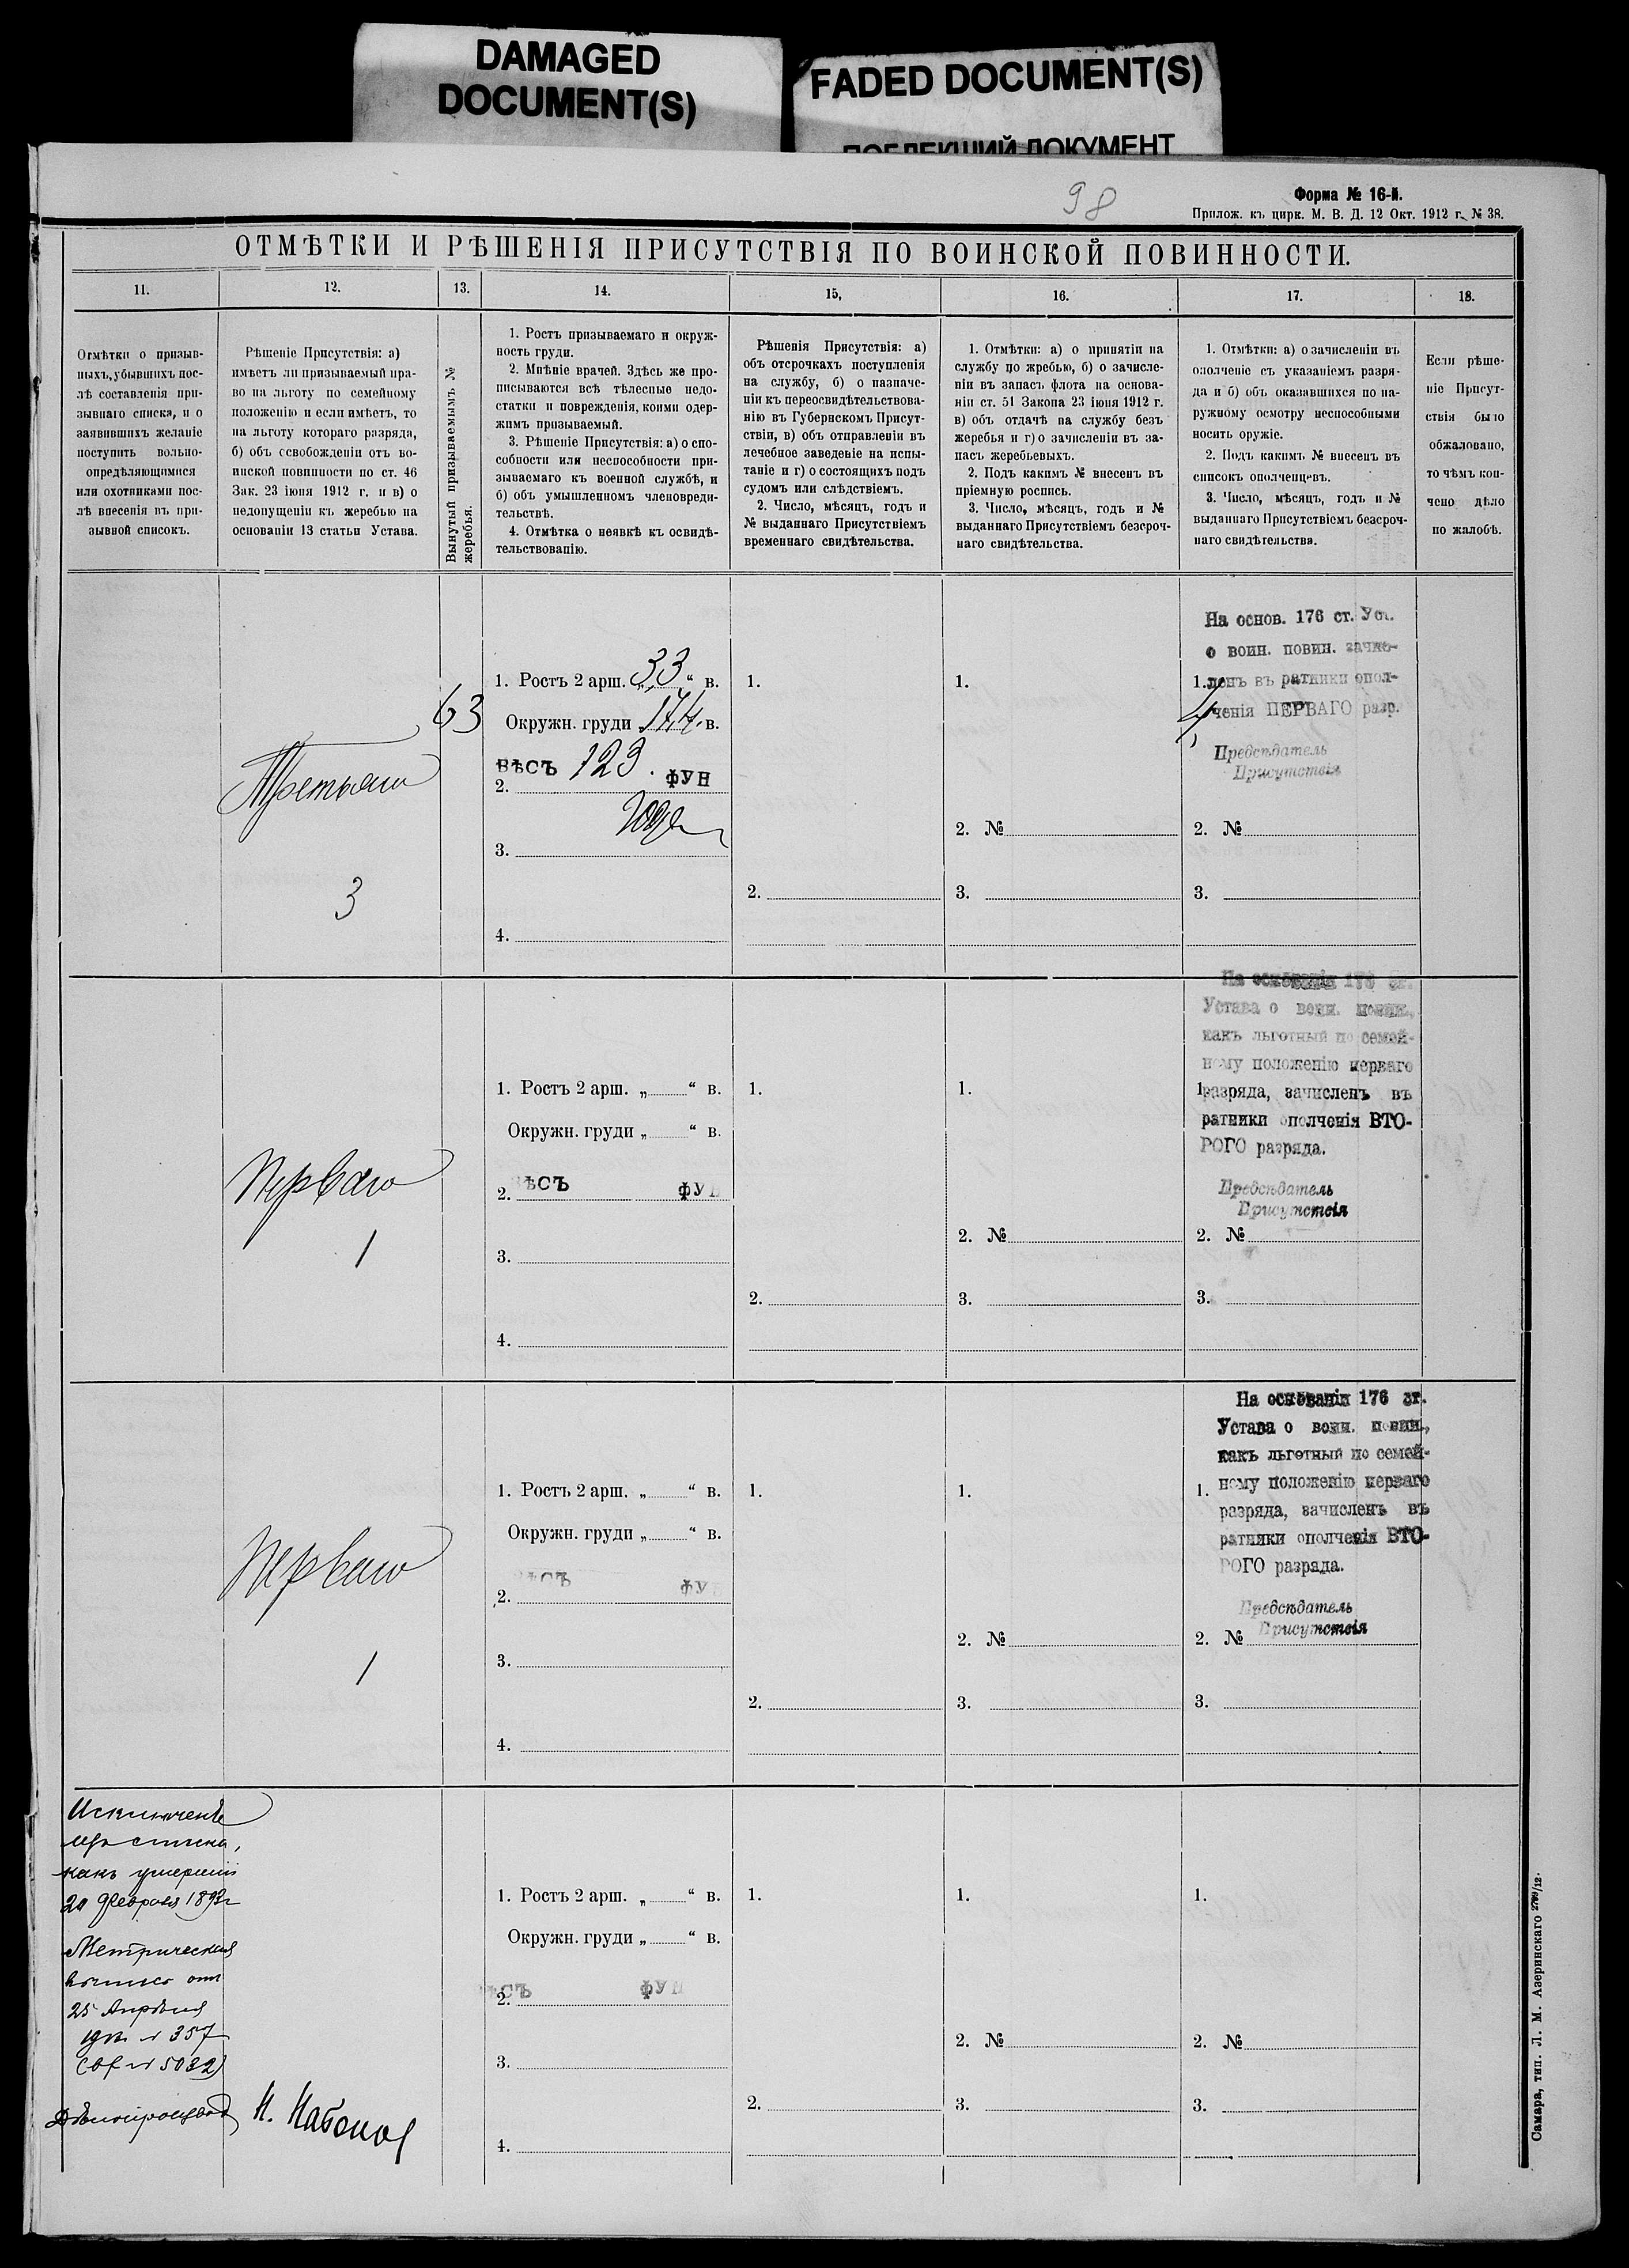 DAMAGED
DOCUMENT(S)
FADED DOCUMENT(S)
ПОБЛЕКШИЙ ДОКУМЕНТ
98
Форма № 16-й.
Прилож. къ цирк. М. В. Д. 12 Окт. 1912 г. № 38.
ОТМѢТКИ И РѢШЕНІЯ ПРИСУТСТВІЯ ПО ВОИНСКОЙ ПОВИННОСТИ.
11.
12.
13.
14.
15,
16.
17.
18.
Отмѣтки о призыв-
ныхъ, убывшихъ пос-
лѣ составленія при-
зывнаго списка, и о
заявившихъ желаніе
поступить вольно-
опредѣляющимися
или охотниками пос-
лѣ внесенія въ при-
зывной списокъ.
Рѣшеніе Присутствія: а)
имѣетъ ли призываемый пра-
во на льготу по семейному
положенію и если имѣетъ, то
на льготу котораго разряда,
б) объ освобожденіи отъ во-
инской повинности по ст. 46
Зак. 23 іюня 1912 г. и в) о
недопущеніи къ жеребью на
основаніи 13 статьи Устава.
Вынутый призываемымъ №
жеребья.
1. Ростъ призываемаго и окруж-
ность груди.
2. Мнѣніе врачей. Здѣсь же про-
писываются всѣ тѣлесные недо-
статки и поврежденія, коими одер-
жимъ призываемый.
3. Рѣшеніе Присутствія: а) о спо-
собности или неспособности при-
зываемаго къ военной службѣ, и
б) объ умышленномъ членовреди-
тельствѣ.
4. Отмѣтка о неявкѣ къ освидѣ-
тельствованію.
Рѣшенія Присутствія: а)
объ отсрочкахъ поступленія
на службу, б) о назначе-
ніи къ переосвидѣтельствова-
нію въ Губернскомъ Присут-
ствіи, в) объ отправленіи въ
лечебное заведеніе на испы-
таніе и г) о состоящихъ подъ
судомъ или слѣдствіемъ.
2. Число, мѣсяцъ, годъ и
№ выданнаго Присутствіемъ
временнаго свидѣтельства.
1. Отмѣтки: а) о принятіи на
службу по жребью, б) о зачисле-
ніи въ запасъ флота на основа-
ніи ст. 51 Закона 23 іюня 1912 г.
в) объ отдачѣ на службу безъ
жеребья и г) о зачисленіи въ за-
пасъ жеребьевыхъ.
2. Подъ какимъ № внесенъ въ
пріемную роспись.
3. Число, мѣсяцъ, годъ и №
выданнаго Присутствіемъ безсроч-
наго свидѣтельства.
1. Отмѣтки: а) о зачисленіи въ
ополченіе съ указаніемъ разря-
да и б) объ оказавшихся по на-
ружному осмотру неспособными
носить оружіе.
2. Подъ какимъ № внесенъ въ
списокъ ополченцевъ.
3. Число, мѣсяцъ, годъ и №
выданнаго Присутствіемъ безсроч-
наго свидѣтельства.
Если рѣше-
ніе Присут-
ствія было
обжаловано,
то чѣмъ кон-
чено дѣло
по жалобѣ.
Третьяго
3
63
1. Ростъ 2 арш. „ 33 “ в.
Окружн. груди „ 17,4 “ в.
ВѢСЪ 129. ФУН
2.
Годен
3.
4.
1.
2.
1.
2. №
3.
На основ. 176 ст. Уст.
о воин. повин. зачис-
1. ленъ въ ратники опол-
ченія ПЕРВАГО разр.
Предсѣдатель
Присутствія
2. №
3.
Перваго
1
1. Ростъ 2 арш. „ “ в.
Окружн. груди „ “ в.
2. ВѢСЪ ФУН
3.
4.
1.
2.
1.
2. №
3.
На основаніи 176 ст.
Устава о воин. повин.,
какъ льготный по семей-
ному положенію перваго
1. разряда, зачисленъ въ
ратники ополченія ВТО-
РОГО разряда.
Предсѣдатель
Присутствія
2. №
3.
Перваго
1
1. Ростъ 2 арш. „ “ в.
Окружн. груди „ “ в.
ВѢСЪ ФУН
2.
3.
4.
1.
2.
1.
2. №
3.
На основаніи 176 ст.
Устава о воин. повин.,
какъ льготный по семей-
1. ному положенію перваго
разряда, зачисленъ въ
ратники ополченія ВТО-
РОГО разряда.
Предсѣдатель
Присутствія
2. №
3.
Исключенъ
изъ списка,
какъ умершій
20 Февраля 1893 г
Метрическая
выпись отъ
25 Апрѣля
№ 357
№ 5032)
Дѣлопроизвод
1. Ростъ 2 арш. „ “ в.
Окружн. груди „ “ в.
ВѢСЪ ФУН
2.
3.
4.
1.
2.
1.
2. №
3.
1.
2. №
3.
Самара, тип. Л. М. Азеринскаго 2799/12.